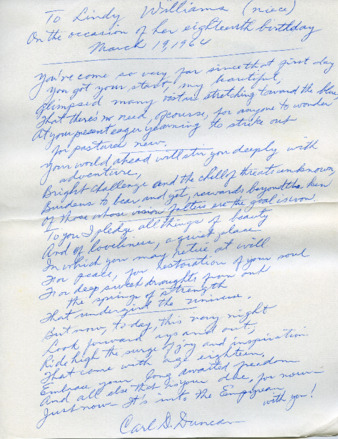 To Lindy Williams (niece)
On the occasion of her eighteenth birthday
March 19, 1964
You've come so very far since that first day
You got your start, my beautiful,
Glimpsed many vistas stretching toward the blue
That there's no need, of course, for anyone to wonder
At your present eager yearning to strike out
In pastures new.
Your world ahead will stir you deeply with
adventure,
Bright challenge and the chill of threats unknown,
Burdens to bear and yet, rewards beyond the ken
Of those whose are the goal
To you I pledge all things of beauty
And of loveliness, a quiet place
In which you may retire at will
For peace, for restoration of your soul
For deep sweet draughts from out
the springs of strength
That undergird the universe.
But now, today, this very night
Look forward, up and out,
Ride high the surge of joy and inspiration
That come with age eighteen,
Embrace your long awaited freedom
And all else that is your due, for now
Just now it's into the Empyrean
with you!
Carl D. Duncan